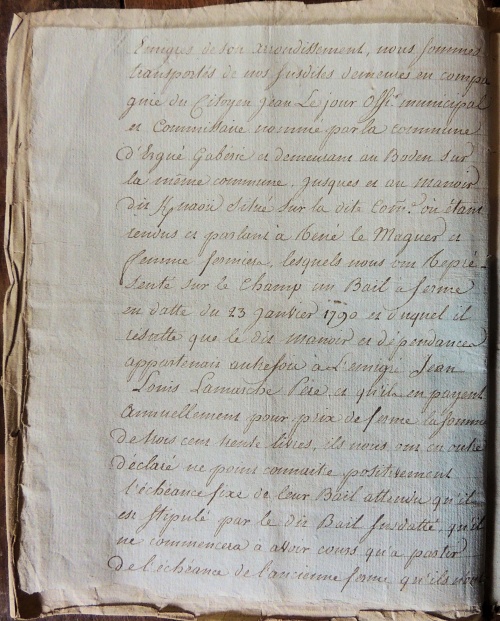 Emigrés de son arrondissement, nous sommes
transportés de nos susdites demeures en compa
gnie du Citoyen Jean Le jour Offi.r municipal
et Commissaire nommé par la commune
d'Ergué Gaberic et demeurant au Boden sur
la même commune, jusques et au manoir
dit Knaou situé sur la dite Com.e où étant
rendus et parlant à René le Maguer et
femme fermiers, lesquels nous ont Repré-
senté sur le Champ un Bail a ferme
en datte du 23 janvier 1790 et duquel il
résulte que le dit manoir et dépendances
appartenais autrefois à L'émigré Jean
Louis Lamarche Pére, et qu'ils en payent
annuellement pour prix de ferme la somme
de trois cent trente livres, ils nous ont en outre
déclaré ne point connaitre positivement
l'échéance fixe de leur Bail attendu qu'il
est stipulé par le dit Bail susdatté qu'il
ne commencera à avoir cours qu'a partir
de l'échéance de l'ancienne ferme qu'ils